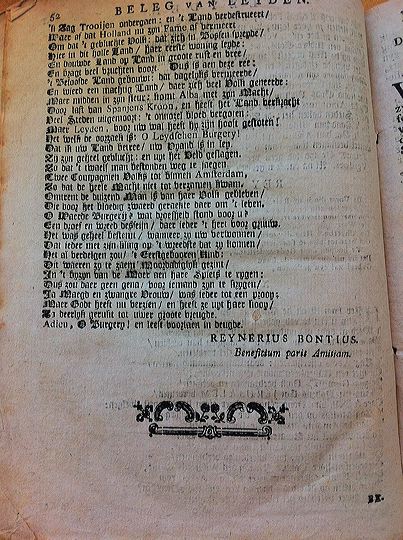 52
BELEG VAN LEYDEN.
'n Zag Troojen ondergaen: en 't Land verdestrueert/
Maer of dat Holland nu zijn Fame
Om dat 't gebluchte Volk: dat zich in Bossen spreyde/
Hier in dit holle Land/ haer eerste woning leyde:
En bouwde Land op Land in groote rust en vree/
En kreegt veel vruchten voort. Dus is aen deze ree:
't Beloofde Land gebouwt: dat dagelijks vermeerde/
En wierd een machtig Land/ daer zich veel Volk geneerde:
Maer midden in zijn fleur/ komt Alba met zijn Macht/
Door last van Spanjens Kroon, en heeft het Land verkracht
Veel Steden uitgemoort: 't onnozel bloed vergoten:
Maer Leyden, voor uw wal heeft hy zijn hooft gestoten!
Het welk de oorzaek is: O Leydschen Burgery!
Dat ik uw Land betree/ uw Vyand is in ly.
Zy zijn geheel gevlucht: en uyt het Veld geslagen.
Zo dat 't twaelf man bestonden weg te jaegen.
Twee Compagnien Volks tot binnen Amsterdam,
Zo dat de heele Macht niet tot verzamen kwam.
Omtrent de duizent Man is van haer Volk gebleven/
Die door het bloedig zwaerd geraekte daer om 't leven.
O Waerde Burgery! wat droefheid stond voor u?
Een droef en wreed desseijn/ daer ieder 't hert voor gruuw.
Het was geheel bestemt/ wanneer zy uw verwonnen/
Dat ieder met zijn kling op 't wreedste dat zy konnen/
Het al verdelgen zou/ 't Eerstgebooren Kind:
Dit waeren zy te zaem' Moordadiglijk gezint/
In 't oogen van de Moer aen haer Spiets te rygen:
Dus zou daer geen gena/ voor iemand zijn te krygen/
Ja Maegd en zwangre Vrouw/ was ieder tot een proop:
Maer Godt heeft nu verzien/ en heeft ze uyt haer hoop/
Zo deerlijk gerukt tot uwer groote vreugde.
Adieu, O Burgery! en leeft voortaen in deugde.
REYNERIUS BONTIUS.
Beneficium paris Amissam.
BE-